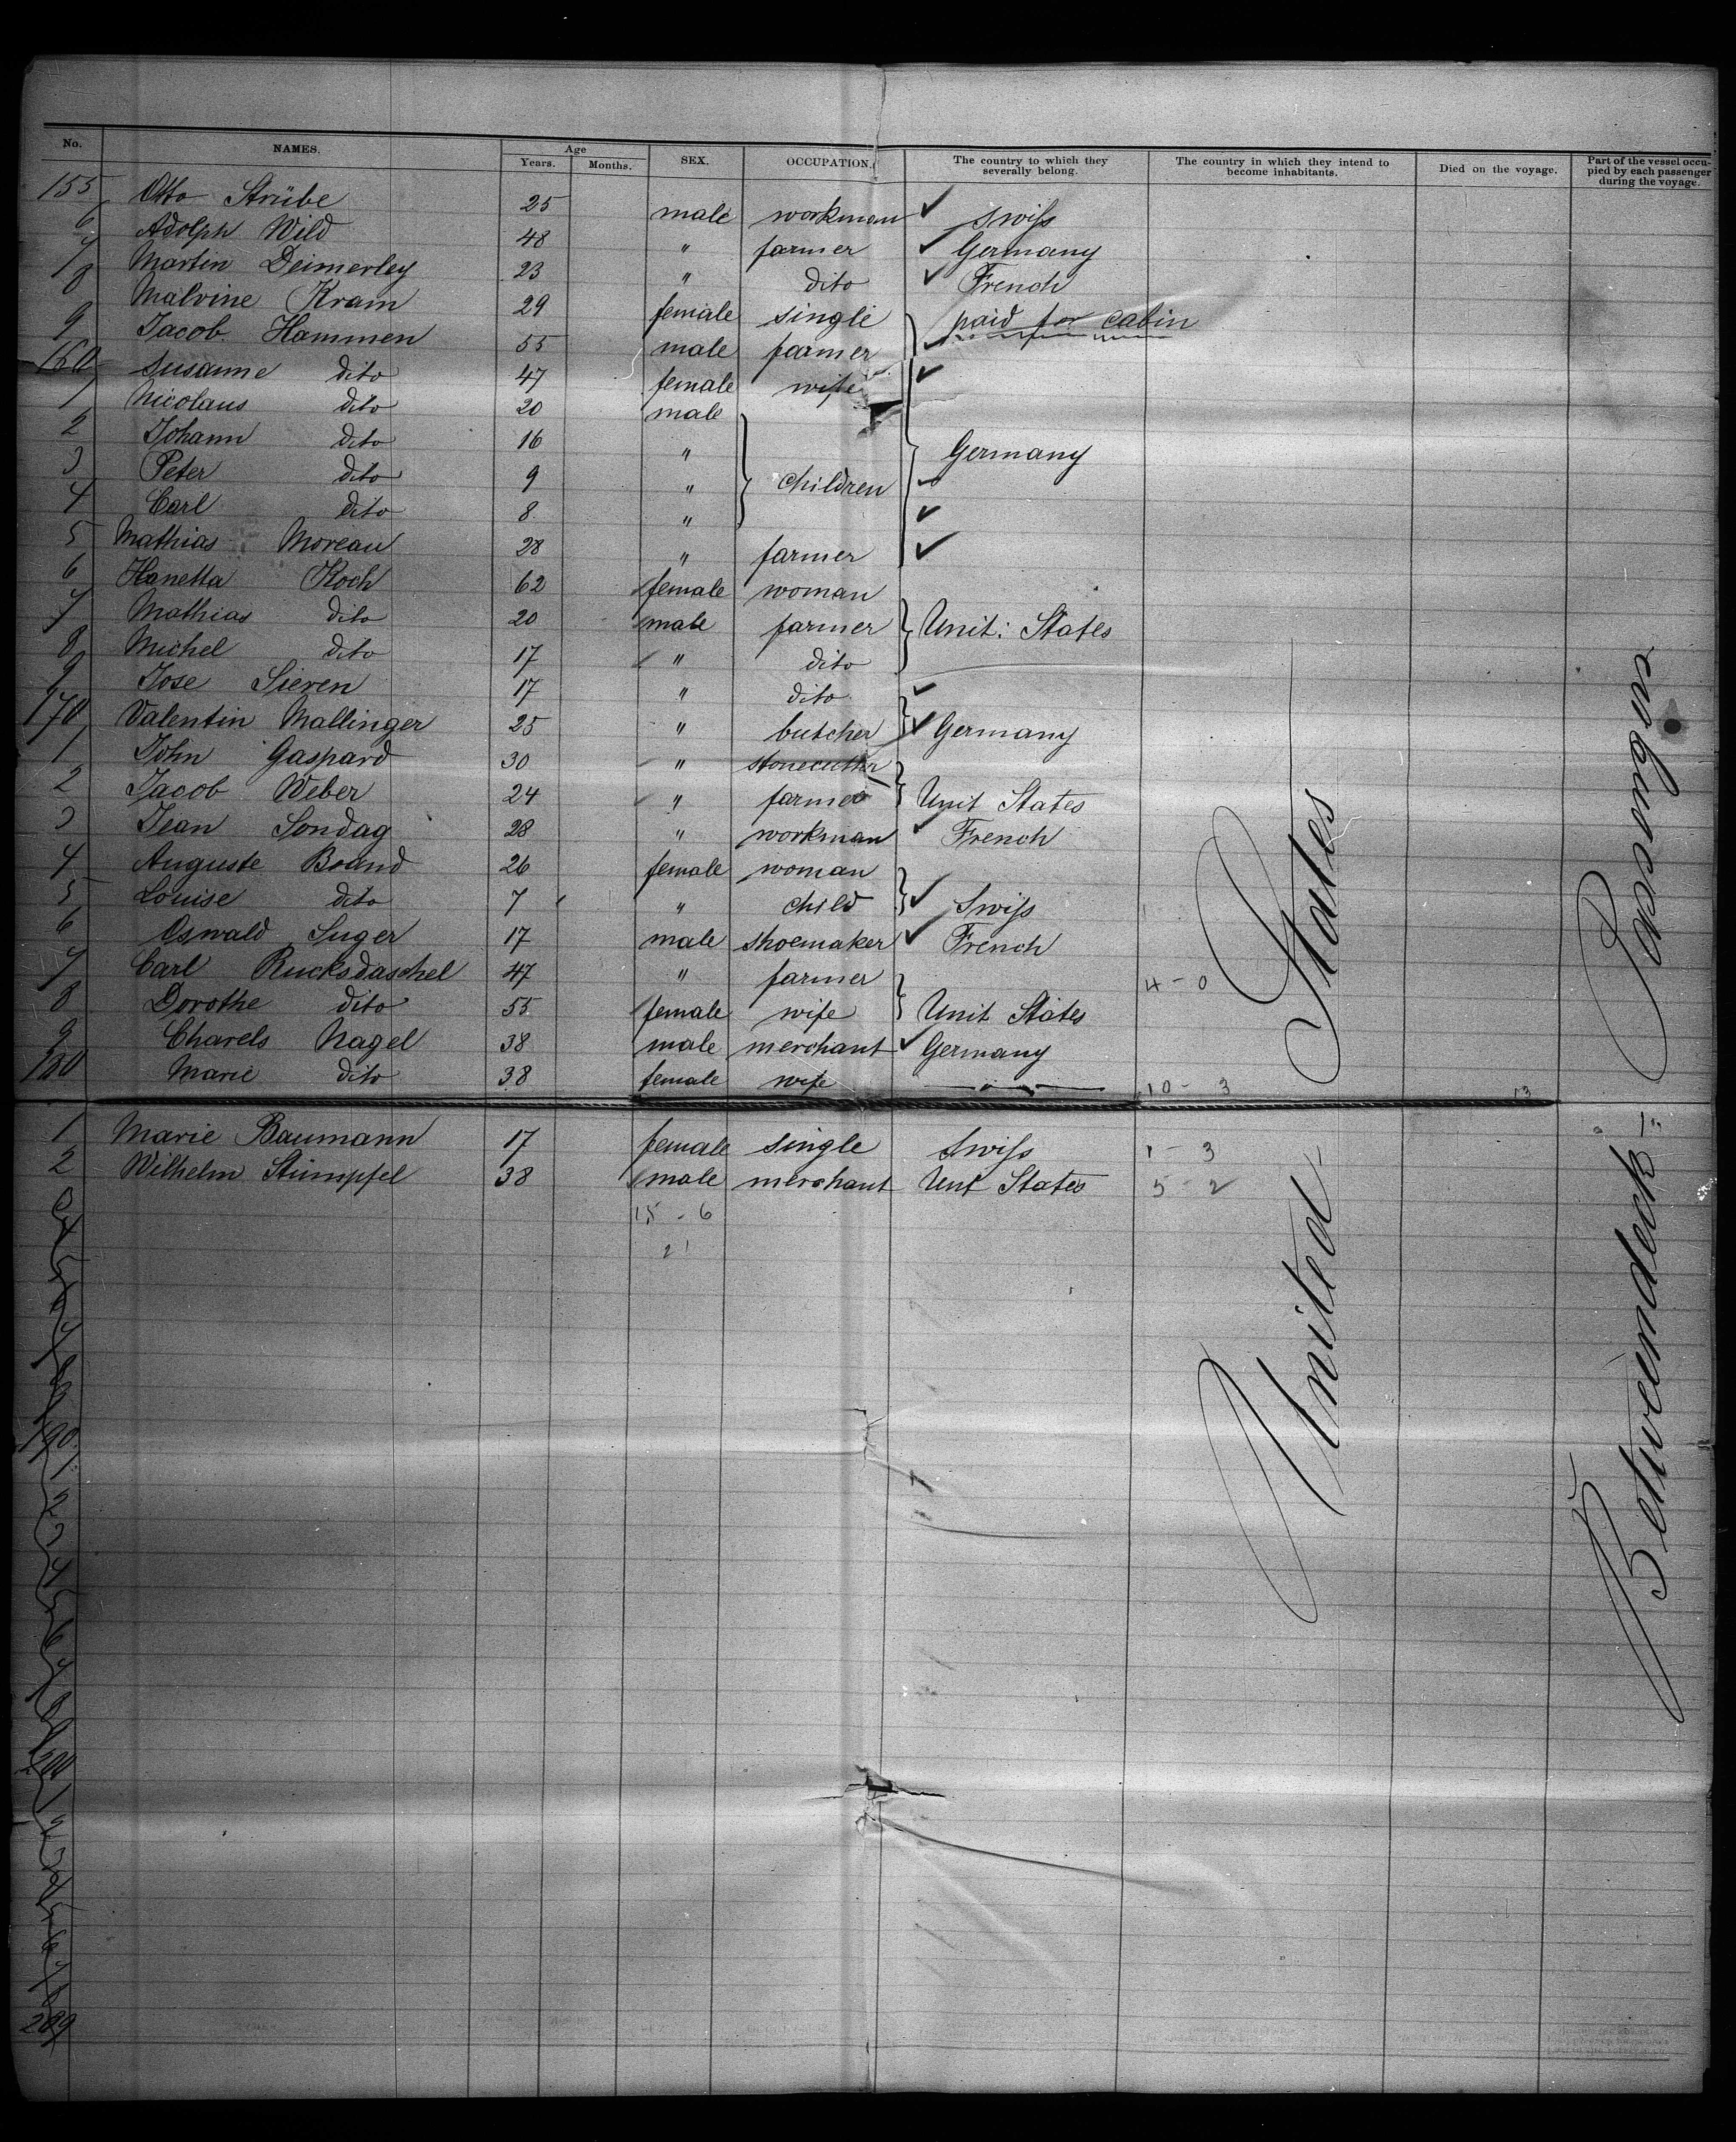 No. NAMES. Age Years. Months. SEX. OCCUPATION. The country to which they severally belong. The country in which they intend to become inhabitants. Died on the voyage. Part of the vessel occupied by each passenger during the voyage.
155 Otto Strübe 25 male workman ✓ Swiss
6 Adolph Wild 48 " farmer ✓ Germany
7 Martin Deimerley 23 " dito ✓ French
8 Malvine Kram 29 female single paid for cabin
9 Jacob Hammen 55 male farmer ✓
160 Susanne dito 47 female wife ✓
1 Nicolaus dito 20 male
2 Johann dito 16 " Germany
3 Peter dito 9 " children ✓
4 Carl dito 8 " ✓
5 Mathias Moreau 28 " farmer ✓
6 Hanetta Koch 62 female woman
7 Mathias dito 20 male farmer Unit: States
8 Michel dito 17 " dito
9 Jose Sieren 17 " dito ✓
170 Valentin Mallinger 25 " butcher ✓ Germany
1 John Gaspard 30 " stonecutter
2 Jacob Weber 24 " farmer Unit States
3 Jean Sondag 28 " workman ✓ French
4 Auguste Brand 26 female woman
5 Louise dito 7 " child ✓ Swiss
6 Oswald Suger 17 male shoemaker ✓ French
7 Carl Rucksdaschel 47 " farmer 4 - 0
8 Dorothe dito 55 female wife Unit States
9 Charels Nagel 38 male merchant ✓ Germany
180 Marie dito 38 female wife 10 - 3
1 Marie Baumann 17 female single Swiss 1 - 3
2 Wilhelm Stümpfel 38 male merchant Unt States 5 - 2
15 - 6
21
3
4
5
6
7
8
9
190
1
2
3
4
5
6
7
8
9
200
1
2
3
4
5
6
7
8
209
United States
Betweendeck Passengers